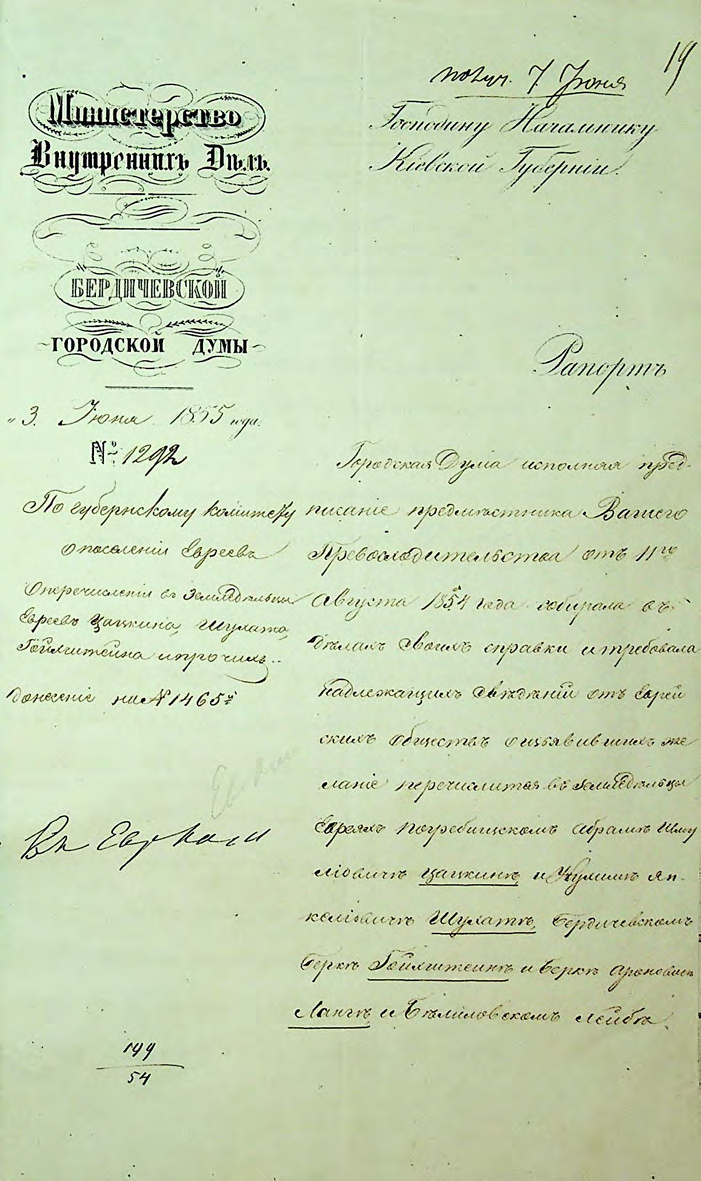 19
получ. 7 Июня
Министерство
Внутреннихъ Дѣлъ.
БЕРДИЧЕВСКОЙ
ГОРОДСКОЙ ДУМЫ
3. Июня 1855 года.
№ 1292
По губернскому комитету
о поселеніи Евреевъ
О перечисленіи въ Земледѣльцы
Евреевъ Цацкина, Шулята,
Гойхштейна и прочихъ.
Донесеніе на № 1465
199
54
Господину Начальнику
Кіевской Губерніи.
Рапортъ
Городская Дума исполняя пред-
писаніе предмѣстника Вашего
Превосходительства отъ 11го
Августа 1854 года собирала въ
дѣлахъ своихъ справки и требовала
надлежащихъ свѣдѣній отъ Еврей
скихъ обществъ о изъявившихъ же
ланіе перечислится въ Земледѣльцы
Евреяхъ Погребищскомъ Абрамѣ Шму
ліовичѣ Цацкинѣ и Янкеліовичѣ
Шулятѣ, Бердичевскомъ
Беркѣ Гойхштейнѣ и Беркѣ Ароновичѣ
Лангѣ и Бѣлиловскомъ Лейбѣ